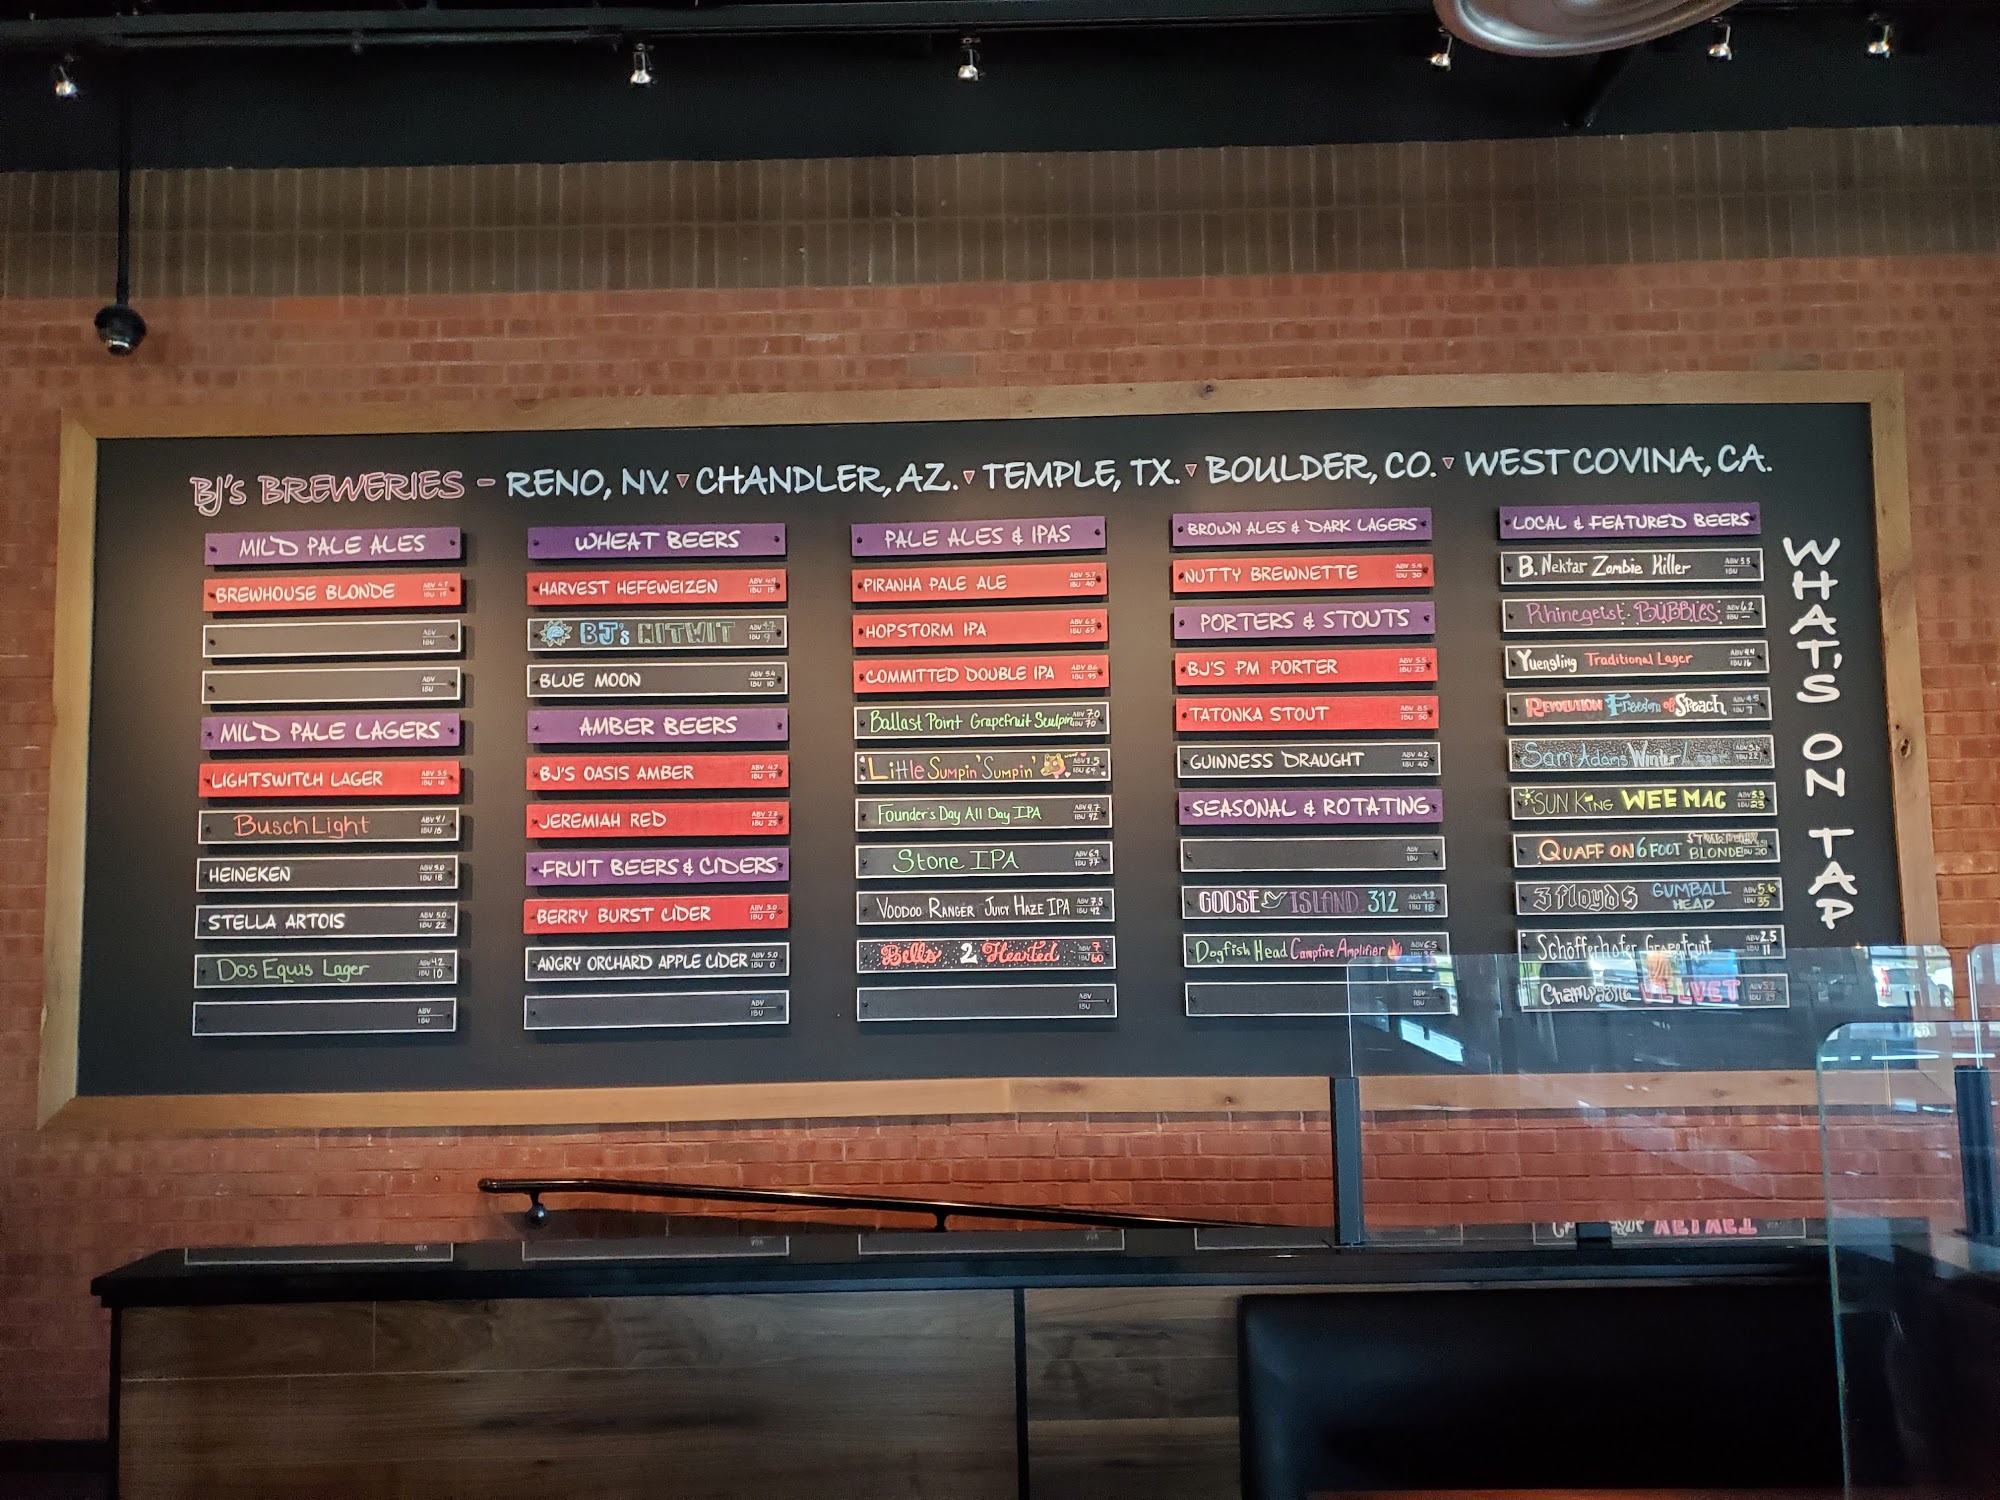 BJ'S BREWERIES - RENO, NV. CHANDLER, AZ. TEMPLE, TX. BOULDER, CO. WEST COVINA, CA.
MILD PALE ALES
BREWHOUSE BLONDE
ABV
IBU
ABV
IBU
MILD PALE LAGERS
LIGHTSWITCH LAGER
Busch Light
HEINEKEN ABV 5.0
IBU 18
STELLA ARTOIS ABV 5.0
IBU 22
Dos Equis Lager ABV 4.2
IBU 10
ABV
IBU
WHEAT BEERS
HARVEST HEFEWEIZEN ABV 4.9
IBU 15
BJ's NITWIT ABV 4.7
IBU 9
BLUE MOON ABV 5.4
IBU 10
AMBER BEERS
BJ'S OASIS AMBER
JEREMIAH RED
FRUIT BEERS & CIDERS
BERRY BURST CIDER
IBU 0
ANGRY ORCHARD APPLE CIDER ABV 5.0
IBU 0
ABV
IBU
PALE ALES & IPAS
PIRANHA PALE ALE ABV 5.7
IBU 40
HOPSTORM IPA ABV 6.5
IBU 65
COMMITTED DOUBLE IPA
IBU 95
Ballast Point Grapefruit Sculpin ABV 7.0
IBU 70
Little Sumpin' Sumpin'
Founder's Day All Day IPA ABV 4.7
IBU 42
Stone IPA ABV 6.9
IBU 77
VOODOO RANGER JUICY HAZE IPA ABV 7.5
IBU 42
Bell's 2 Hearted ABV 7
IBU 60
ABV
IBU
BROWN ALES & DARK LAGERS
NUTTY BREWNETTE ABV 5.9
IBU 30
PORTERS & STOUTS
BJ'S PM PORTER ABV 5.5
IBU 25
TATONKA STOUT ABV 8.5
IBU 50
GUINNESS DRAUGHT ABV 4.2
IBU 40
SEASONAL & ROTATING
ABV
IBU
GOOSE ISLAND 312 ABV 4.2
IBU 18
Dogfish Head Campfire Amplifier ABV 6.5
ABV
IBU
LOCAL & FEATURED BEERS
B. Nektar Zombie Killer ABV 5.5
IBU
Rhinegeist BUBBLES ABV 6.2
IBU
Yuengling Traditional Lager ABV 4.4
IBU 16
REVOLUTION Freedom of Speach ABV 4.5
IBU 7
Sam Adams Winter Lager ABV 5.6
IBU 22
SUN KING WEE MAC ABV 5.3
IBU 23
QUAFF ON 6 FOOT BLONDE IBU 20
3 floyds GUMBALL HEAD ABV 5.6
IBU 35
Schöfferhofer GRAPEFRUIT ABV 2.5
IBU 11
Champagne VELVET ABV 5.2
WHAT'S ON TAP